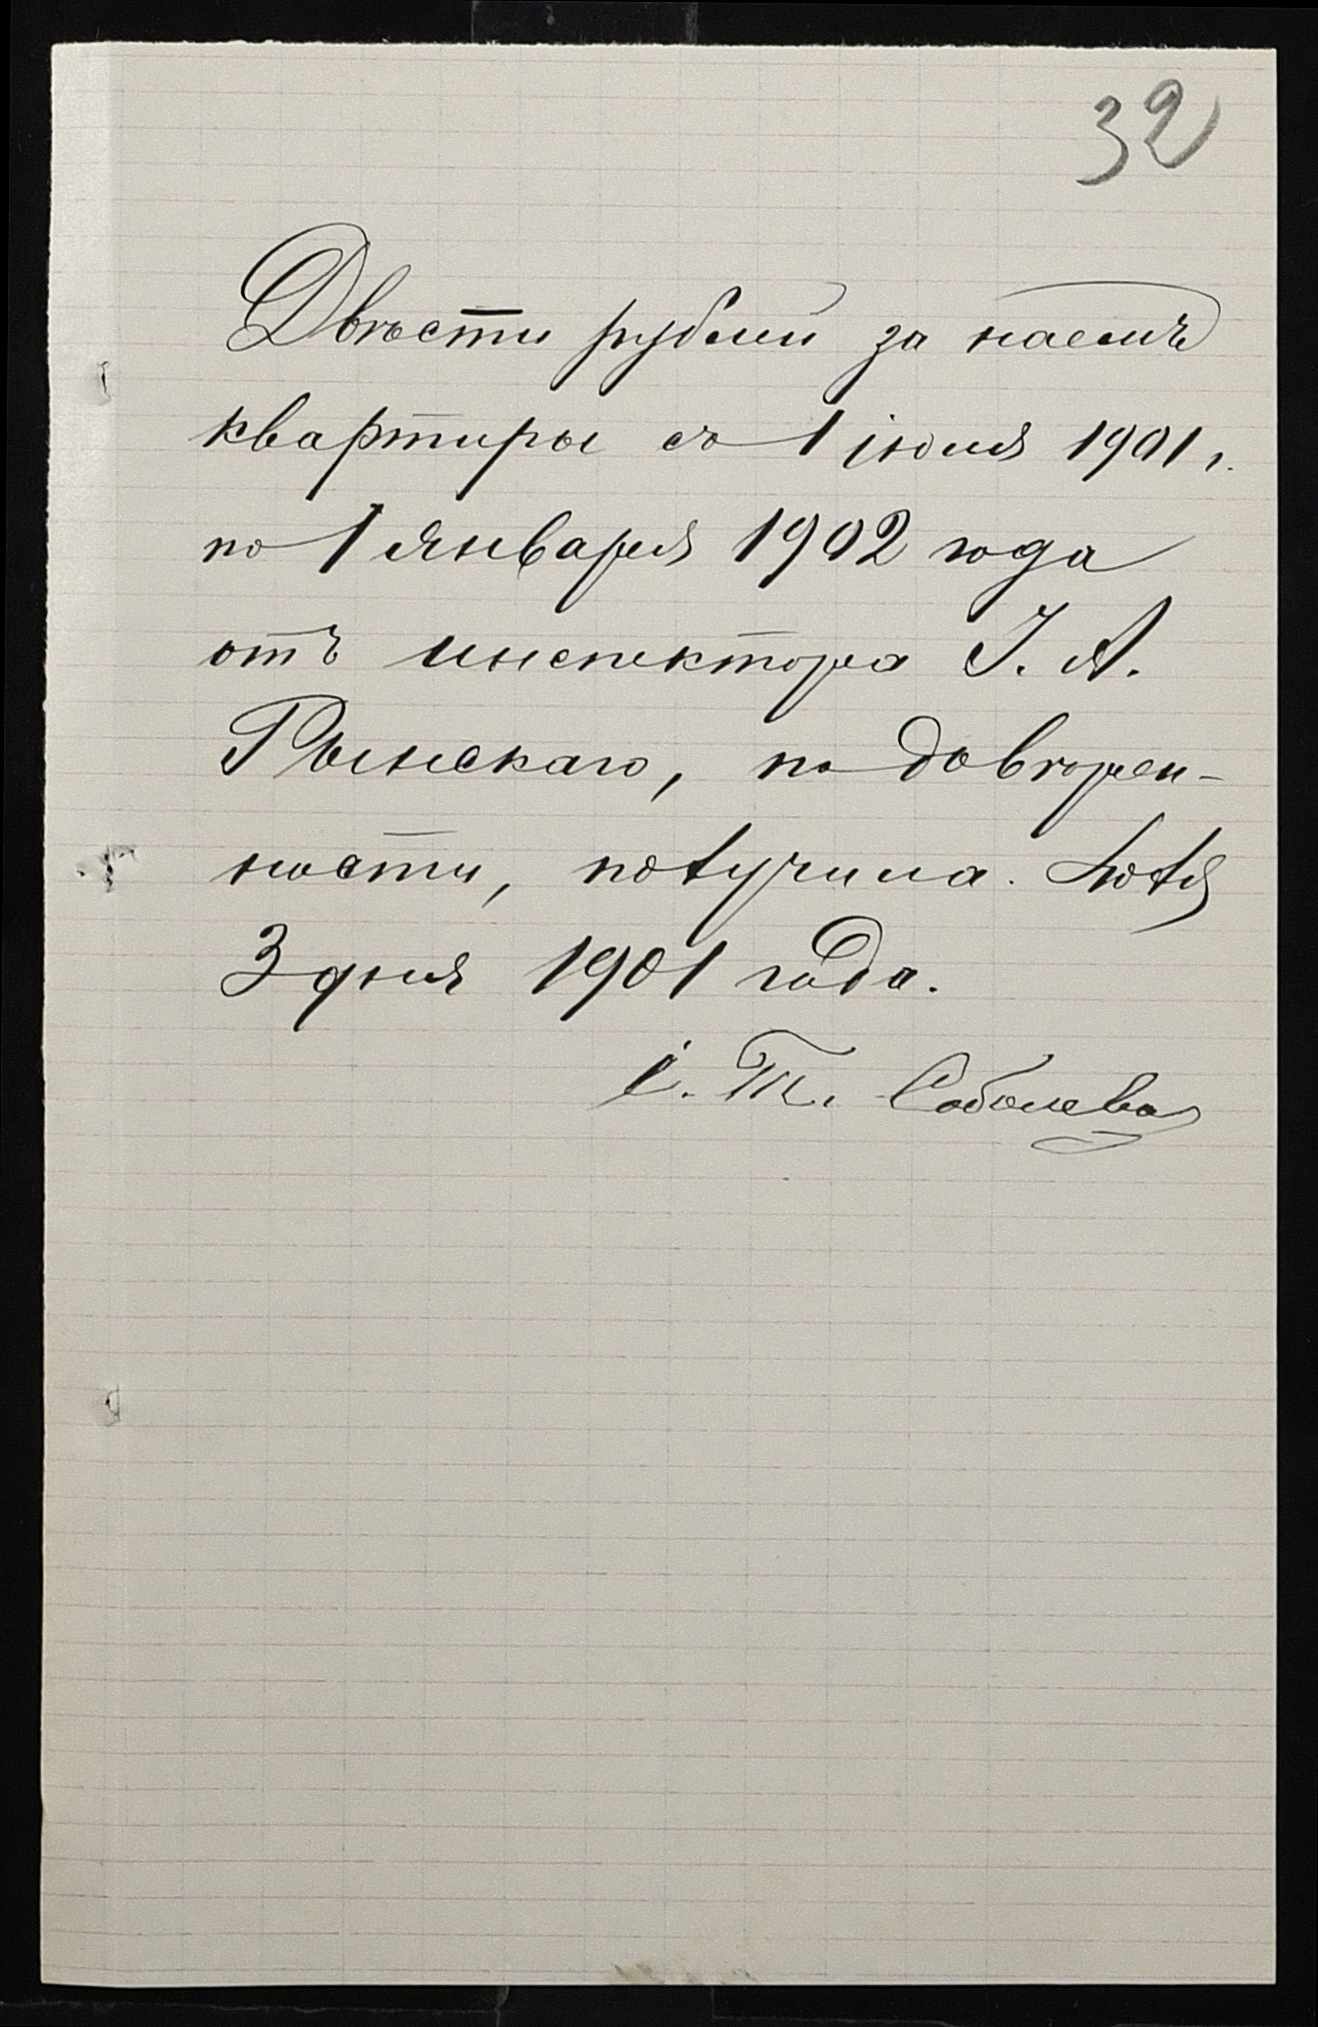 32
Двѣсти рублей за наемъ
квартиры съ 1 іюля 1901 г.
по 1 января 1902 года
отъ инспектора І. А.
Рынскаго, по довѣрен-
ности, получила. Іюля
3 дня 1901 года.
Соболева